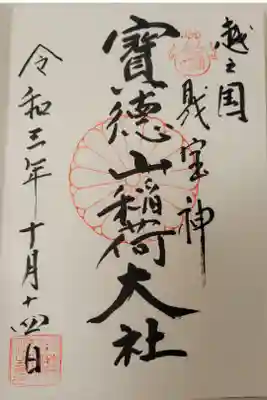 越之国
財宝神
寶德山稲荷大社
令和三年十月十四日